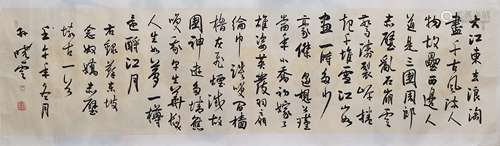 大江東去浪淘
盡千古風流人
物故壘西邊人
道是三國周郎
赤壁亂石崩雲
驚濤裂岸捲
起千堆雪江山如
畫一時多少
豪傑遙想公瑾
當年小喬初嫁了
雄姿英發羽扇
綸巾談笑間檣
櫓灰飛煙滅故
國神遊多情應
笑我早生華髮
人生如夢一樽
還酹江月
右錄蘇東坡
念奴嬌赤壁
懷古一首
壬午年冬月
孙晓云